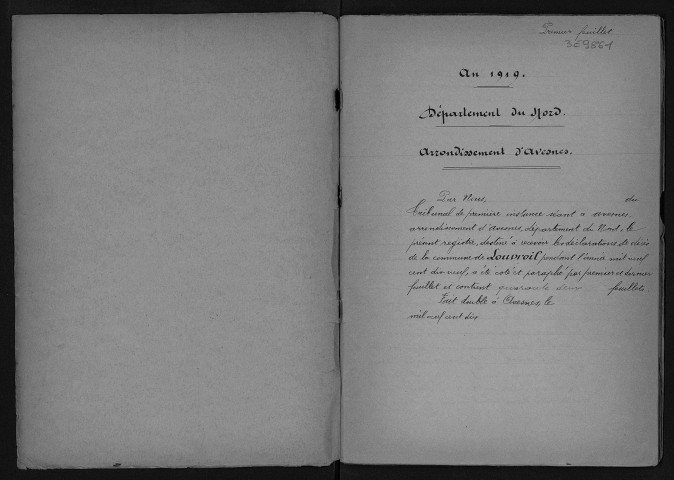 Premier feuillet
3E9861
An 1919.
Département du Nord.
Arrondissement d'Avesnes.
Par Nous, du
Tribunal de première instance séant à Avesnes,
arrondissement d'Avesnes, département du Nord, le
présent registre, destiné à recevoir les déclarations de décès
de la commune de Louvroil pendant l'année mil neuf
cent dix neuf, a été coté et paraphé par premier et dernier
feuillet et contient quarante deux feuillets.
Fait double à Avesnes le
mil neuf cent dix